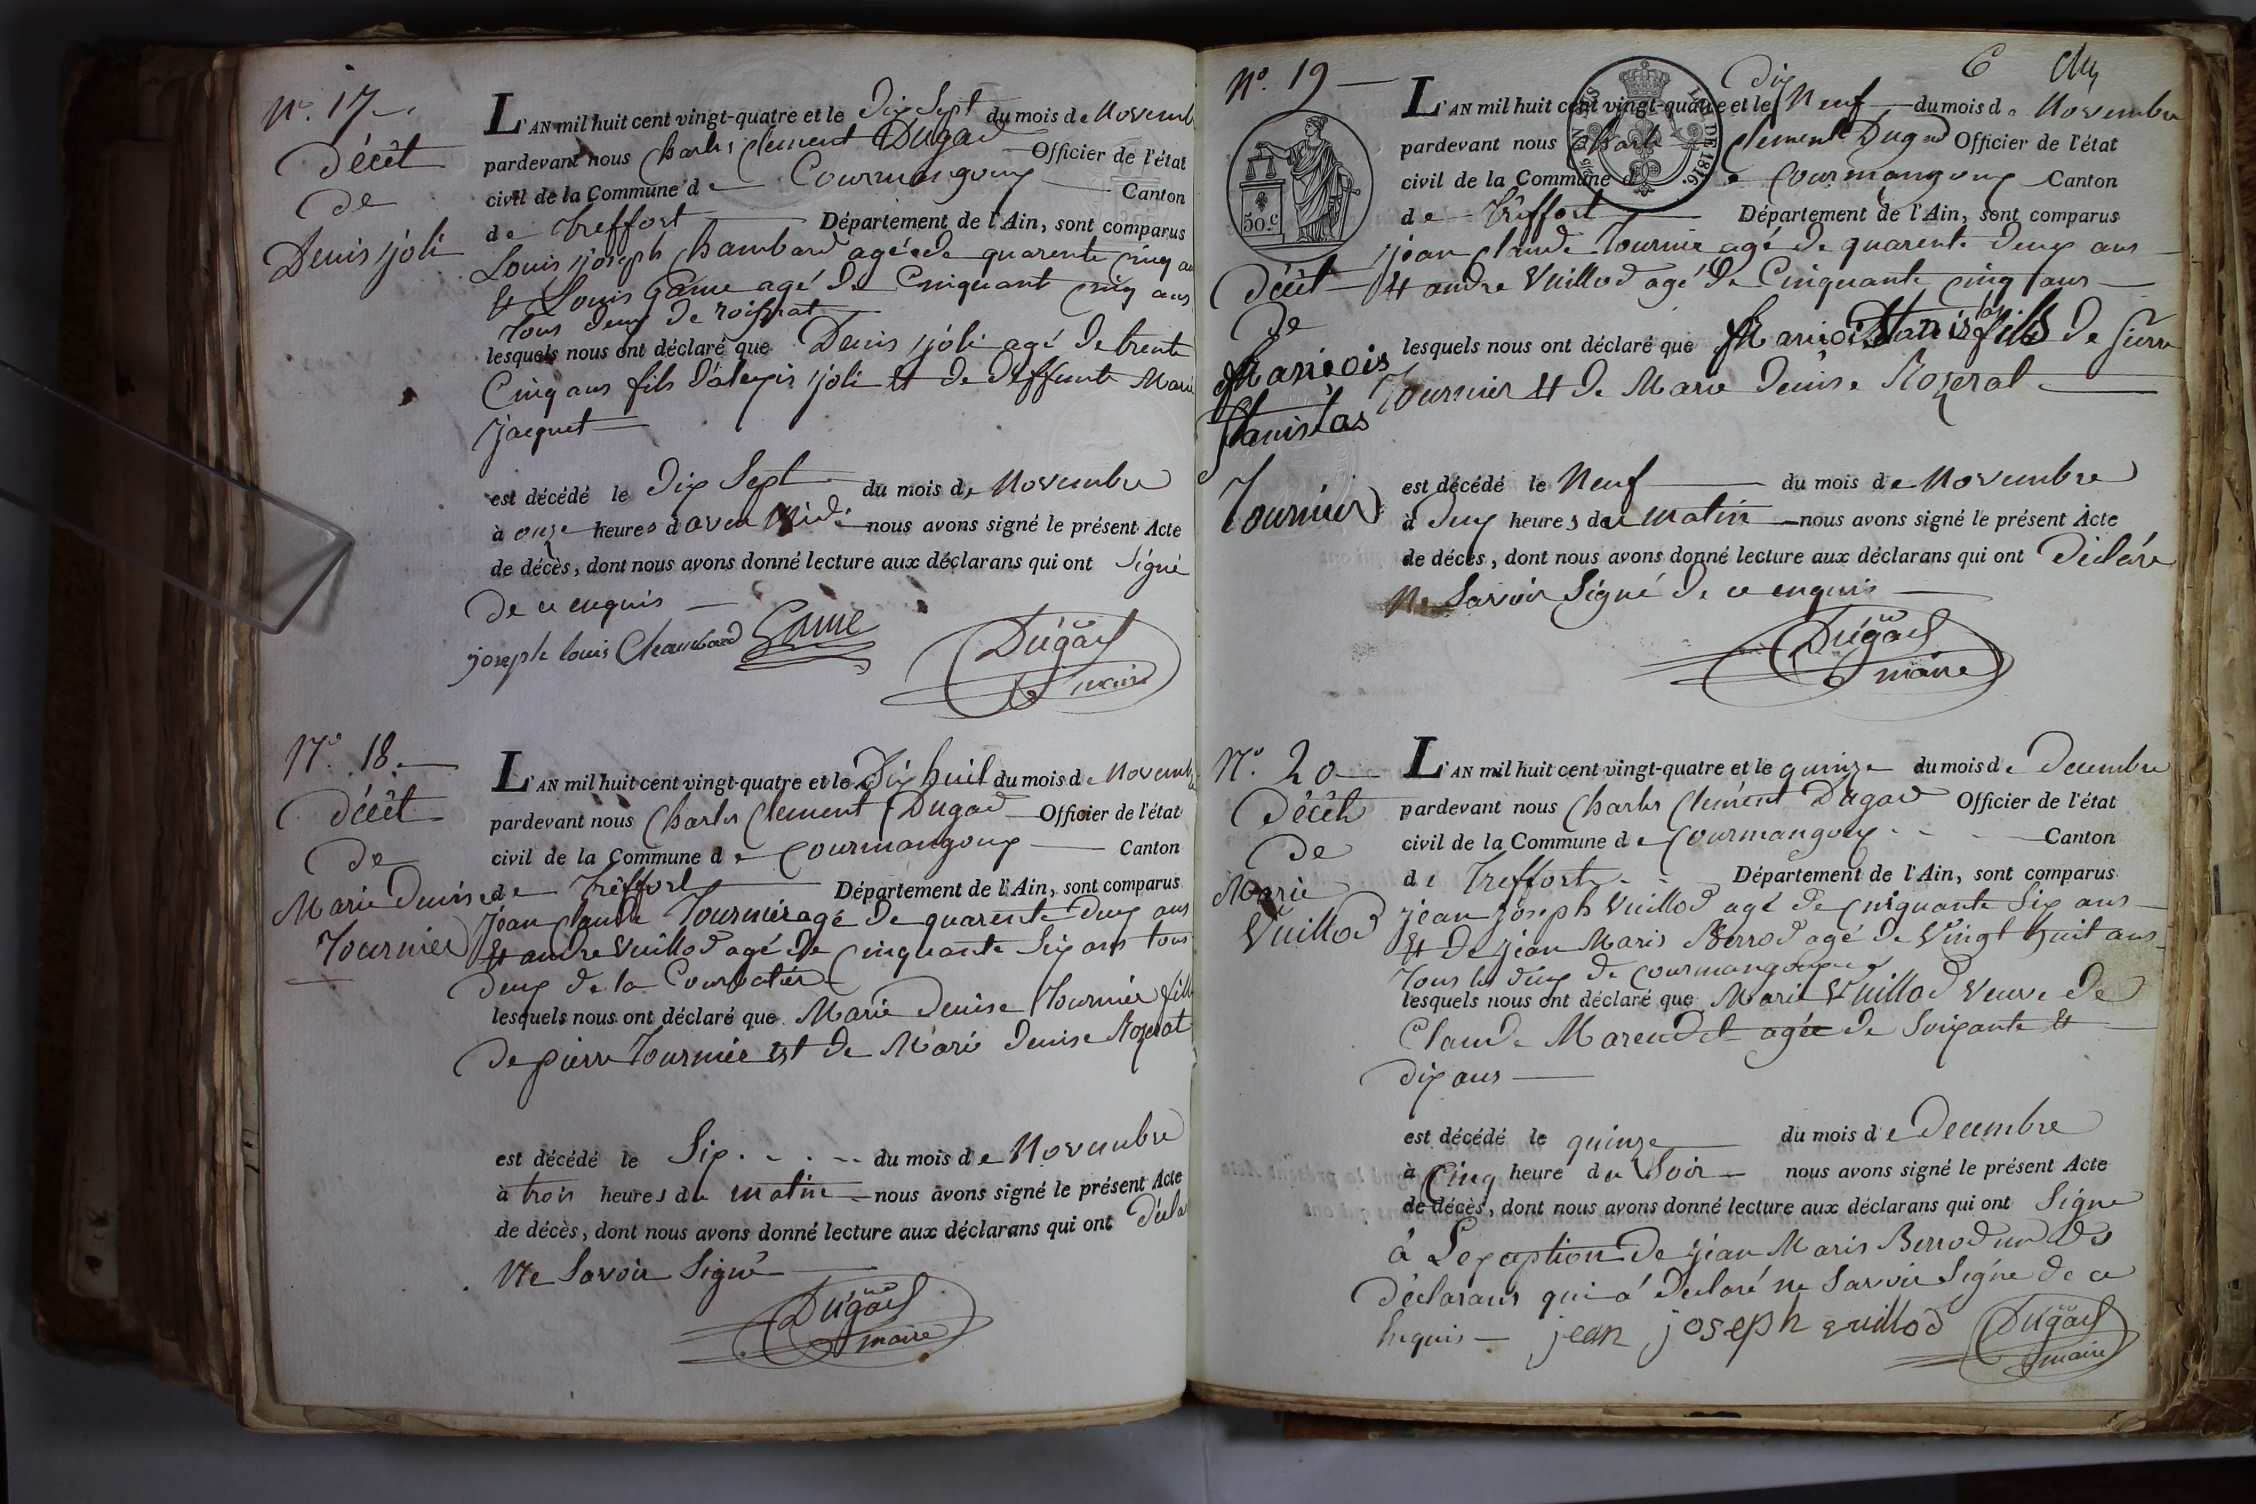 N.° 17
décêt
de
Denis joli
L'AN mil huit cent vingt-quatre et le dix Sept du mois de Novemb
pardevant nous Charles Clement Dugad Officier de l'état
civil de la Commune de Courmangoux Canton
de Treffort Département de l'Ain, sont comparus
Louis joseph Chambard agé de quarente cinq a
et Louis Game agé de Cinquant cinq ans
tous deux de roissiat
lesquels nous ont déclaré que Denis joli agé de trente
Cinq ans fils d'alexis joli et de deffunte Marie
jacquet
est décédé le dix Sept du mois de Novembre
à onze heures d'avan Midi nous avons signé le présent Acte
de décès, dont nous avons donné lecture aux déclarans qui ont Signé
de ce enquis
joseph louis Chambard Game Dugad
maire
N.° 18
décêt
de
Marie Denise
Tournier
L'AN mil huit cent vingt-quatre et le dix huit du mois de Novemb
pardevant nous Charles Clement Dugad Officier de l'état
civil de la Commune de Courmangoux Canton
de Treffort Département de l'Ain, sont comparus
jean claude Tournier agé de quarente deux ans
et andre Vuillod agé de cinquante Six ans tous
deux de la
lesquels nous ont déclaré que Marie Denise Tournier fille
de pierre Tournier et de Marie denise Rozerat
est décédé le Six du mois de Novembre
à trois heures du matin nous avons signé le présent Acte
de décès, dont nous avons donné lecture aux déclarans qui ont décla
Ne Savoir Signé
Dugad
maire
6
N.° 19
50.c
LOI DE 1816.
décêt
de
françois
Stanislas
Tournier
L'AN mil huit cent vingt-quatre et le dix Neuf du mois de Novembre
pardevant nous Charle Clement Dugad Officier de l'état
civil de la Commune de Courmangoux Canton
de Treffort Département de l'Ain, sont comparus
jean claude Tournie agé de quarente deux ans
et andre Vuillod agé de Cinquante cinq ans
lesquels nous ont déclaré que fils de pierre
Tournier et de Marie denise Rozerat
est décédé le Neuf du mois de Novembre
à deux heures du matin nous avons signé le présent Acte
de décès, dont nous avons donné lecture aux déclarans qui ont déclaré
Ne Savoir Signé de ce enquis
Dugad
maire
N.° 20
décêt
de
Marie
Vuillod
L'AN mil huit cent vingt-quatre et le quinze du mois de decembre
pardevant nous Charles Clement Dugad Officier de l'état
civil de la Commune de Courmangoux Canton
de Treffort Département de l'Ain, sont comparus
jean joseph Vuillod agé de cinquante Six ans
et de jean Marie Berrod agé de Vingt huit ans
tous les deux de courmangoux
lesquels nous ont déclaré que Marie Vuillod veuve de
Claude Marendet agée de Soixante et
dix ans
est décédé le quinze du mois de decembre
à Cinq heure du Soir nous avons signé le présent Acte
de décès, dont nous avons donné lecture aux déclarans qui ont Signe
à Lexception de jean Marie Berrod un des
declarans qui a declaré ne Savoir Signe de ce
Enquis jean joseph vuillod Dugad
maire